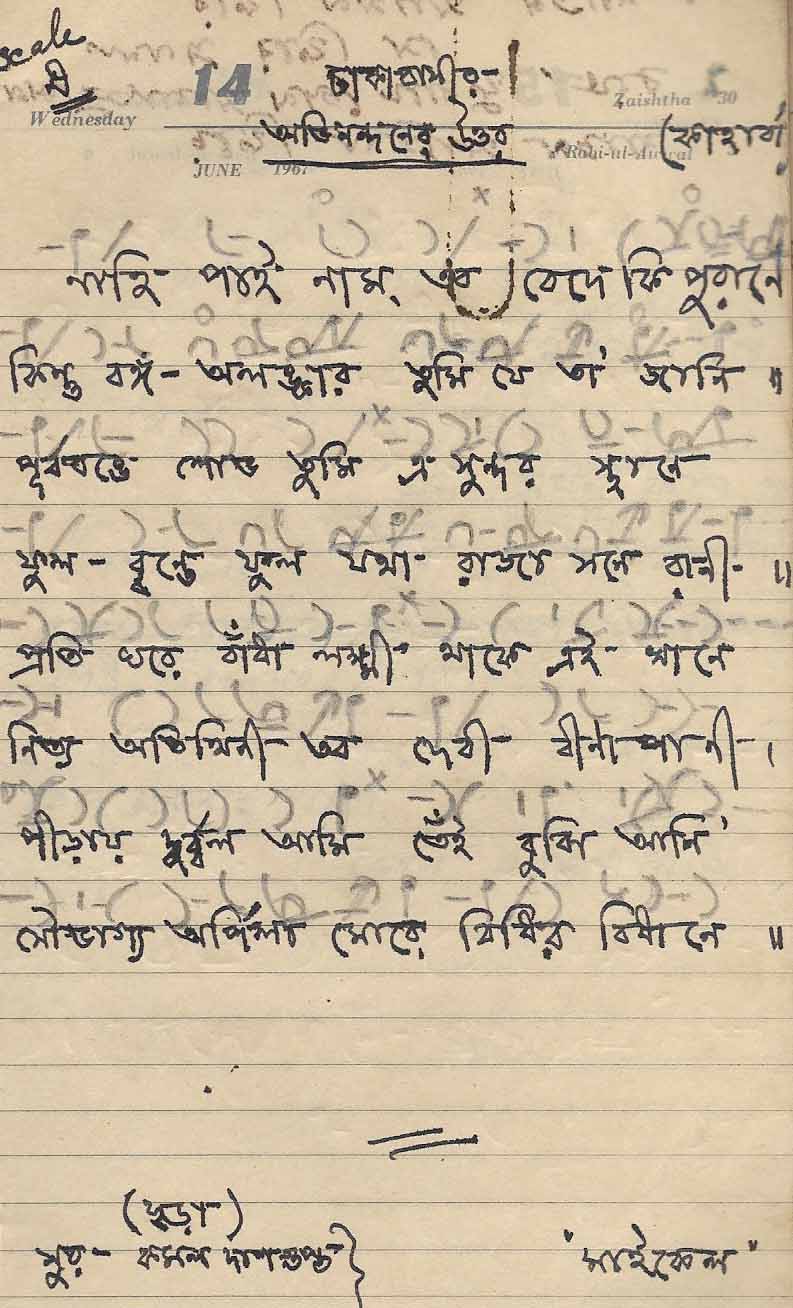 scale
14
Wednesday
JUNE 1967
Zaishtha 30
Rabi-ul-Awwal
ঢাকাবাসীর-
অভিনন্দনের উত্তর
(কাহার্বা
নাহি পাই নাম তব বেদে কি পুরানে
কিন্তু বঙ্গ-অলঙ্কার তুমি যে তা' জানি ॥
পূর্ববঙ্গে শোভ তুমি এ সুন্দর স্থানে
ফুল-বৃন্তে ফুল যথা রাজাসনে রানী ॥
প্রতি ঘরে বাঁধা লক্ষ্মী থাকে এই খানে
নিত্য অতিথিনী তব দেবী বীনাপানী ।
পীড়ায় দুর্ব্বল আমি তেঁই বুঝি আনি'
সৌভাগ্য অর্পিলা মোরে বিধির বিধানে ॥
সুর- কমল দাশগুপ্ত
"মাইকেল"